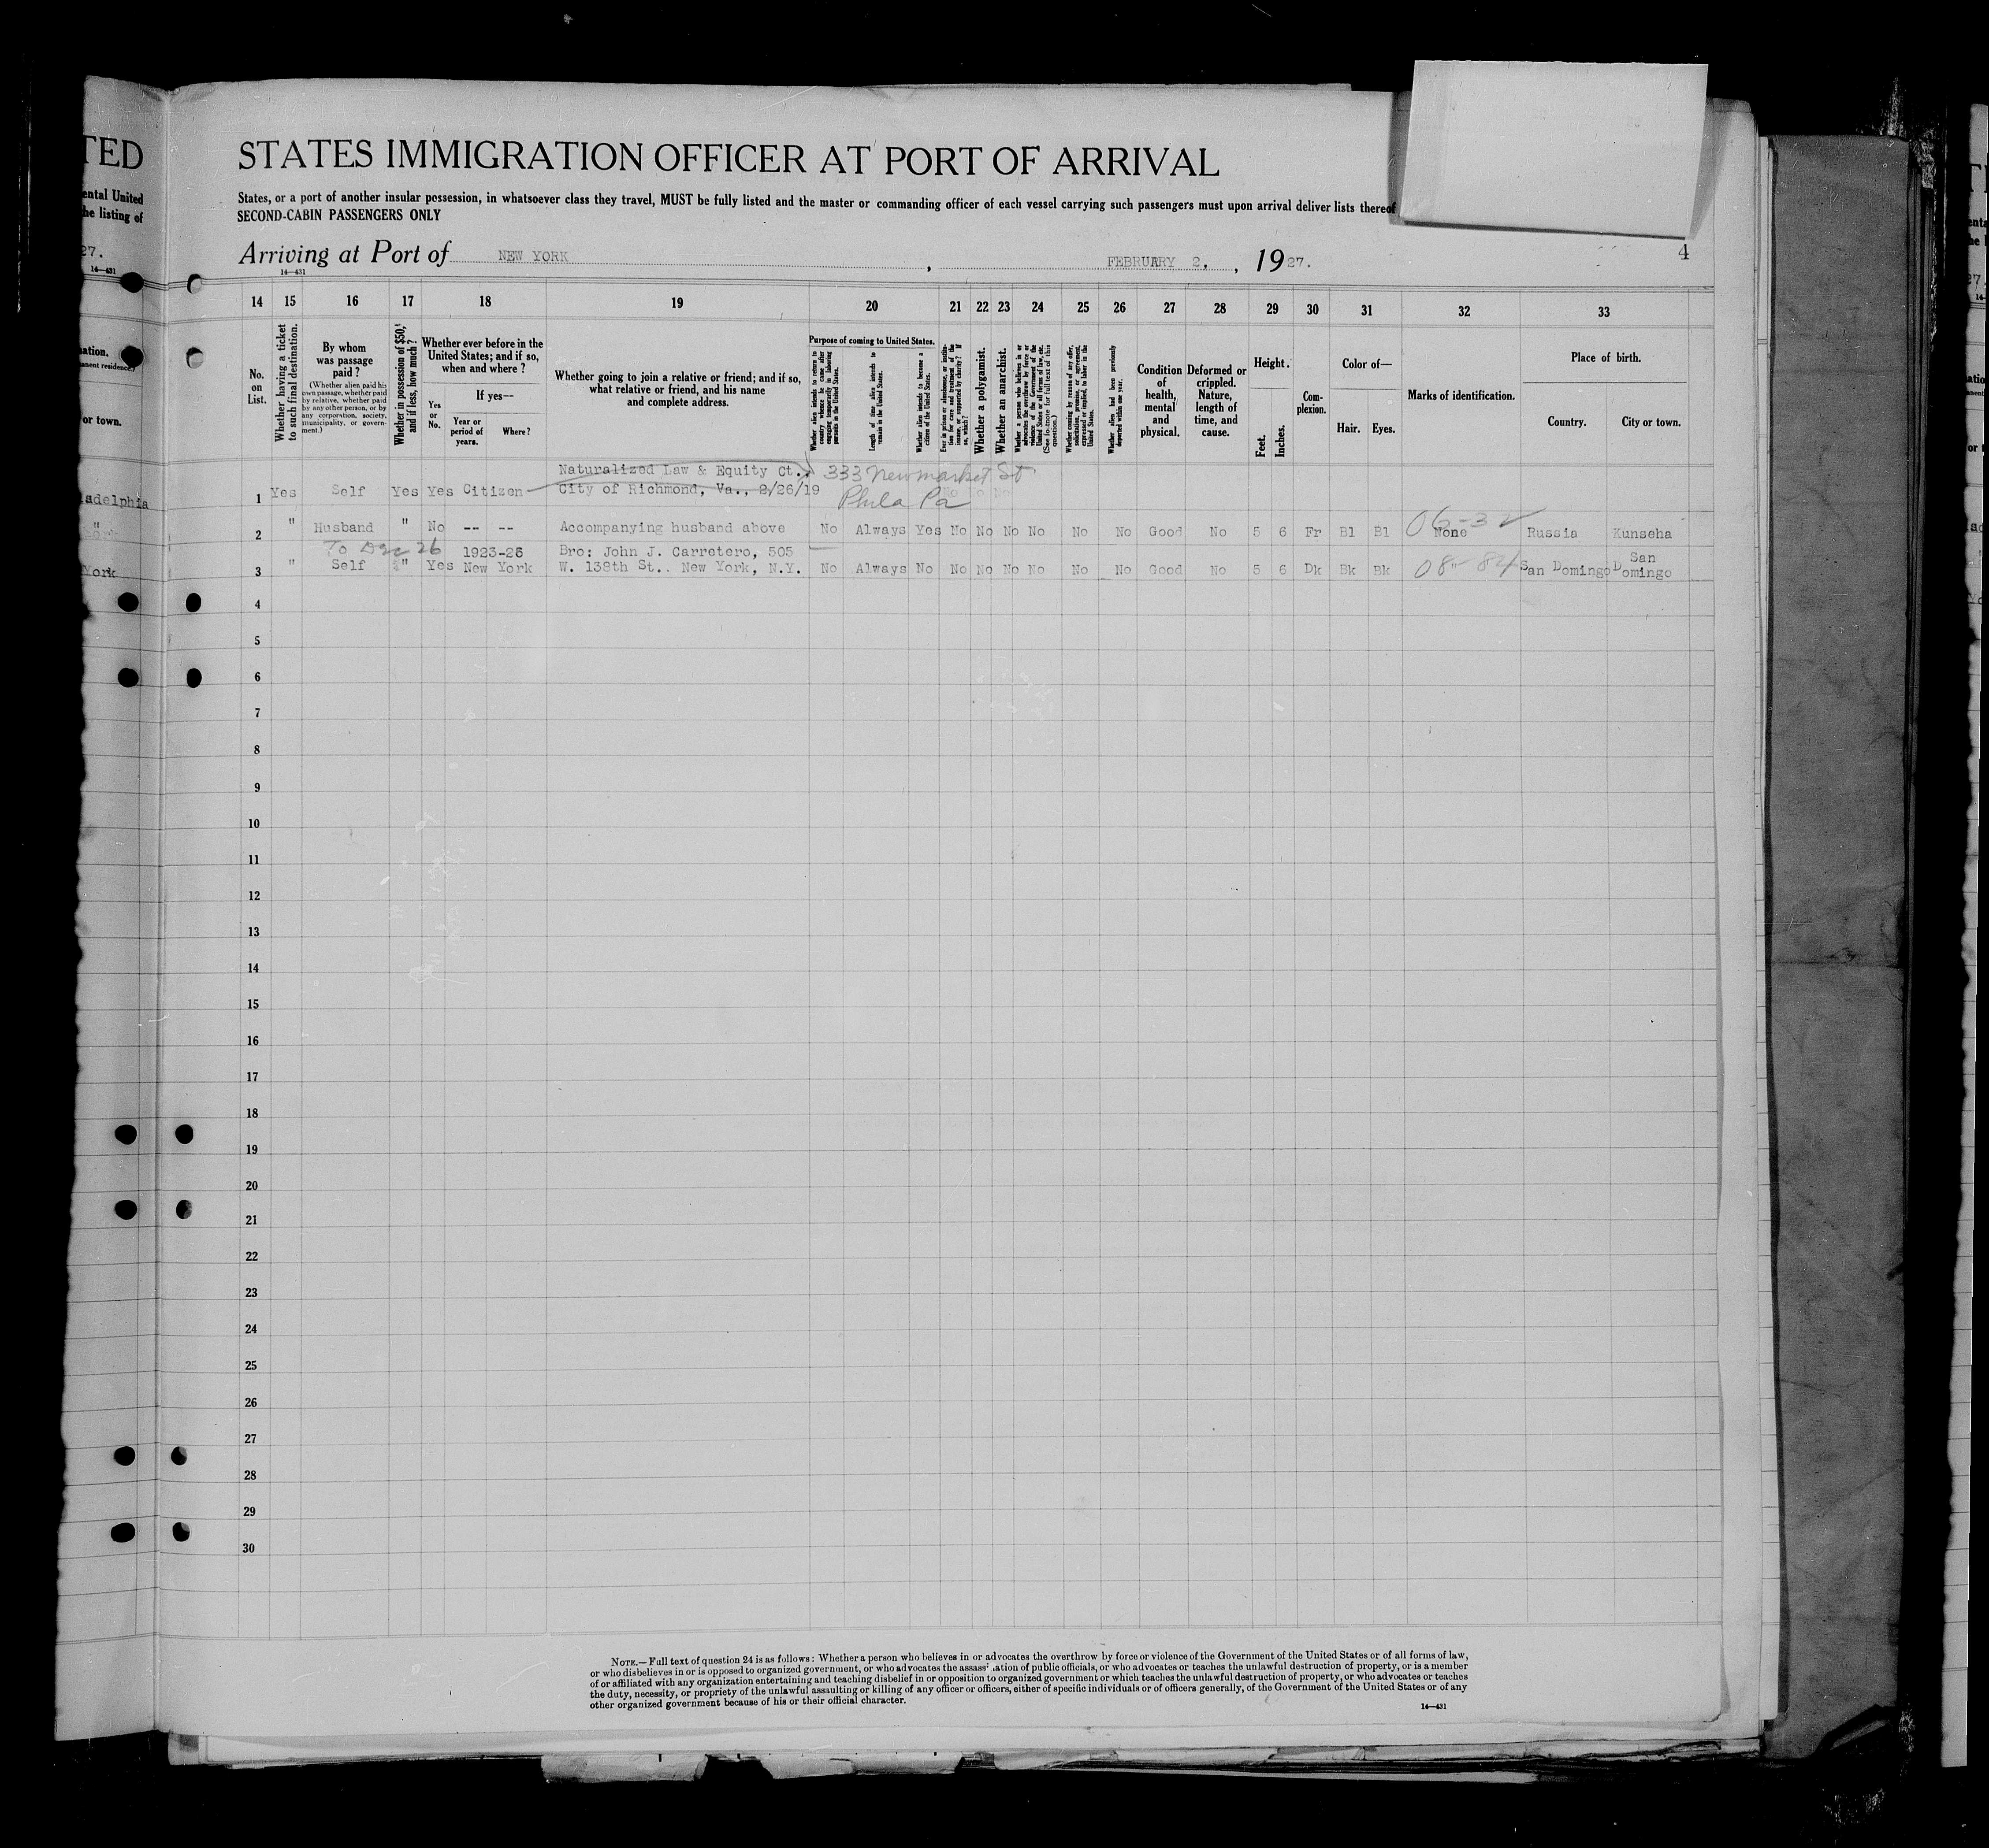 TED
ental United
he listing of
27.
14—431
ation.
anent residence.)
or town.
adelphia
"
York
STATES IMMIGRATION OFFICER AT PORT OF ARRIVAL
States, or a port of another insular possession, in whatsoever class they travel, MUST be fully listed and the master or commanding officer of each vessel carrying such passengers must upon arrival deliver lists thereof
SECOND-CABIN PASSENGERS ONLY
Arriving at Port of NEW YORK, FEBRUARY 2, 1927.
14—431
4
14 15 16 17 18 19 20 21 22 23 24 25 26 27 28 29 30 31 32 33
No. on List.
Whether having a ticket to such final destination.
By whom was passage paid?
(Whether alien paid his own passage, whether paid by relative, whether paid by any other person, or by any corporation, society, municipality, or government.)
Whether in possession of $50, and if less, how much?
Whether ever before in the United States; and if so, when and where?
Yes or No.
If yes—
Year or period of years.
Where?
Whether going to join a relative or friend; and if so, what relative or friend, and his name and complete address.
Purpose of coming to United States.
Whether alien intends to return to country whence he came after engaging temporarily in laboring pursuits in the United States.
Length of time alien intends to remain in the United States.
Whether alien intends to become a citizen of the United States.
Ever in prison or almshouse, or institution for care and treatment of the insane, or supported by charity? If so, which?
Whether a polygamist.
Whether an anarchist.
Whether a person who believes in or advocates the overthrow by force or violence of the Government of the United States or all forms of law, etc. (See footnote for full text of this question.)
Whether coming by reason of any offer, solicitation, promise, or agreement, expressed or implied, to labor in the United States.
Whether alien had been previously deported within one year.
Condition of health, mental and physical.
Deformed or crippled. Nature, length of time, and cause.
Height.
Feet. Inches.
Complexion.
Color of—
Hair. Eyes.
Marks of identification.
Place of birth.
Country. City or town.
Naturalized Law & Equity Ct., 333 Newmarket St
1 Yes Self Yes Yes Citizen City of Richmond, Va., 2/26/19 Phila Pa
2 " Husband " No -- -- Accompanying husband above No Always Yes No No No No No No Good No 5 6 Fr Bl Bl None 06-32 Russia Kunseha
To Dec 26 1923-26 Bro: John J. Carretero, 505 San
3 " Self " Yes New York W. 138th St.. New York, N.Y. No Always No No No No No No No Good No 5 6 Dk Bk Bk 08-84 San Domingo Domingo
4
5
6
7
8
9
10
11
12
13
14
15
16
17
18
19
20
21
22
23
24
25
26
27
28
29
30
NOTE.—Full text of question 24 is as follows: Whether a person who believes in or advocates the overthrow by force or violence of the Government of the United States or of all forms of law,
or who disbelieves in or is opposed to organized government, or who advocates the assassination of public officials, or who advocates or teaches the unlawful destruction of property, or is a member
of or affiliated with any organization entertaining and teaching disbelief in or opposition to organized government or which teaches the unlawful destruction of property, or who advocates or teaches
the duty, necessity, or propriety of the unlawful assaulting or killing of any officer or officers, either of specific individuals or of officers generally, of the Government of the United States or of any
other organized government because of his or their official character.
14—431